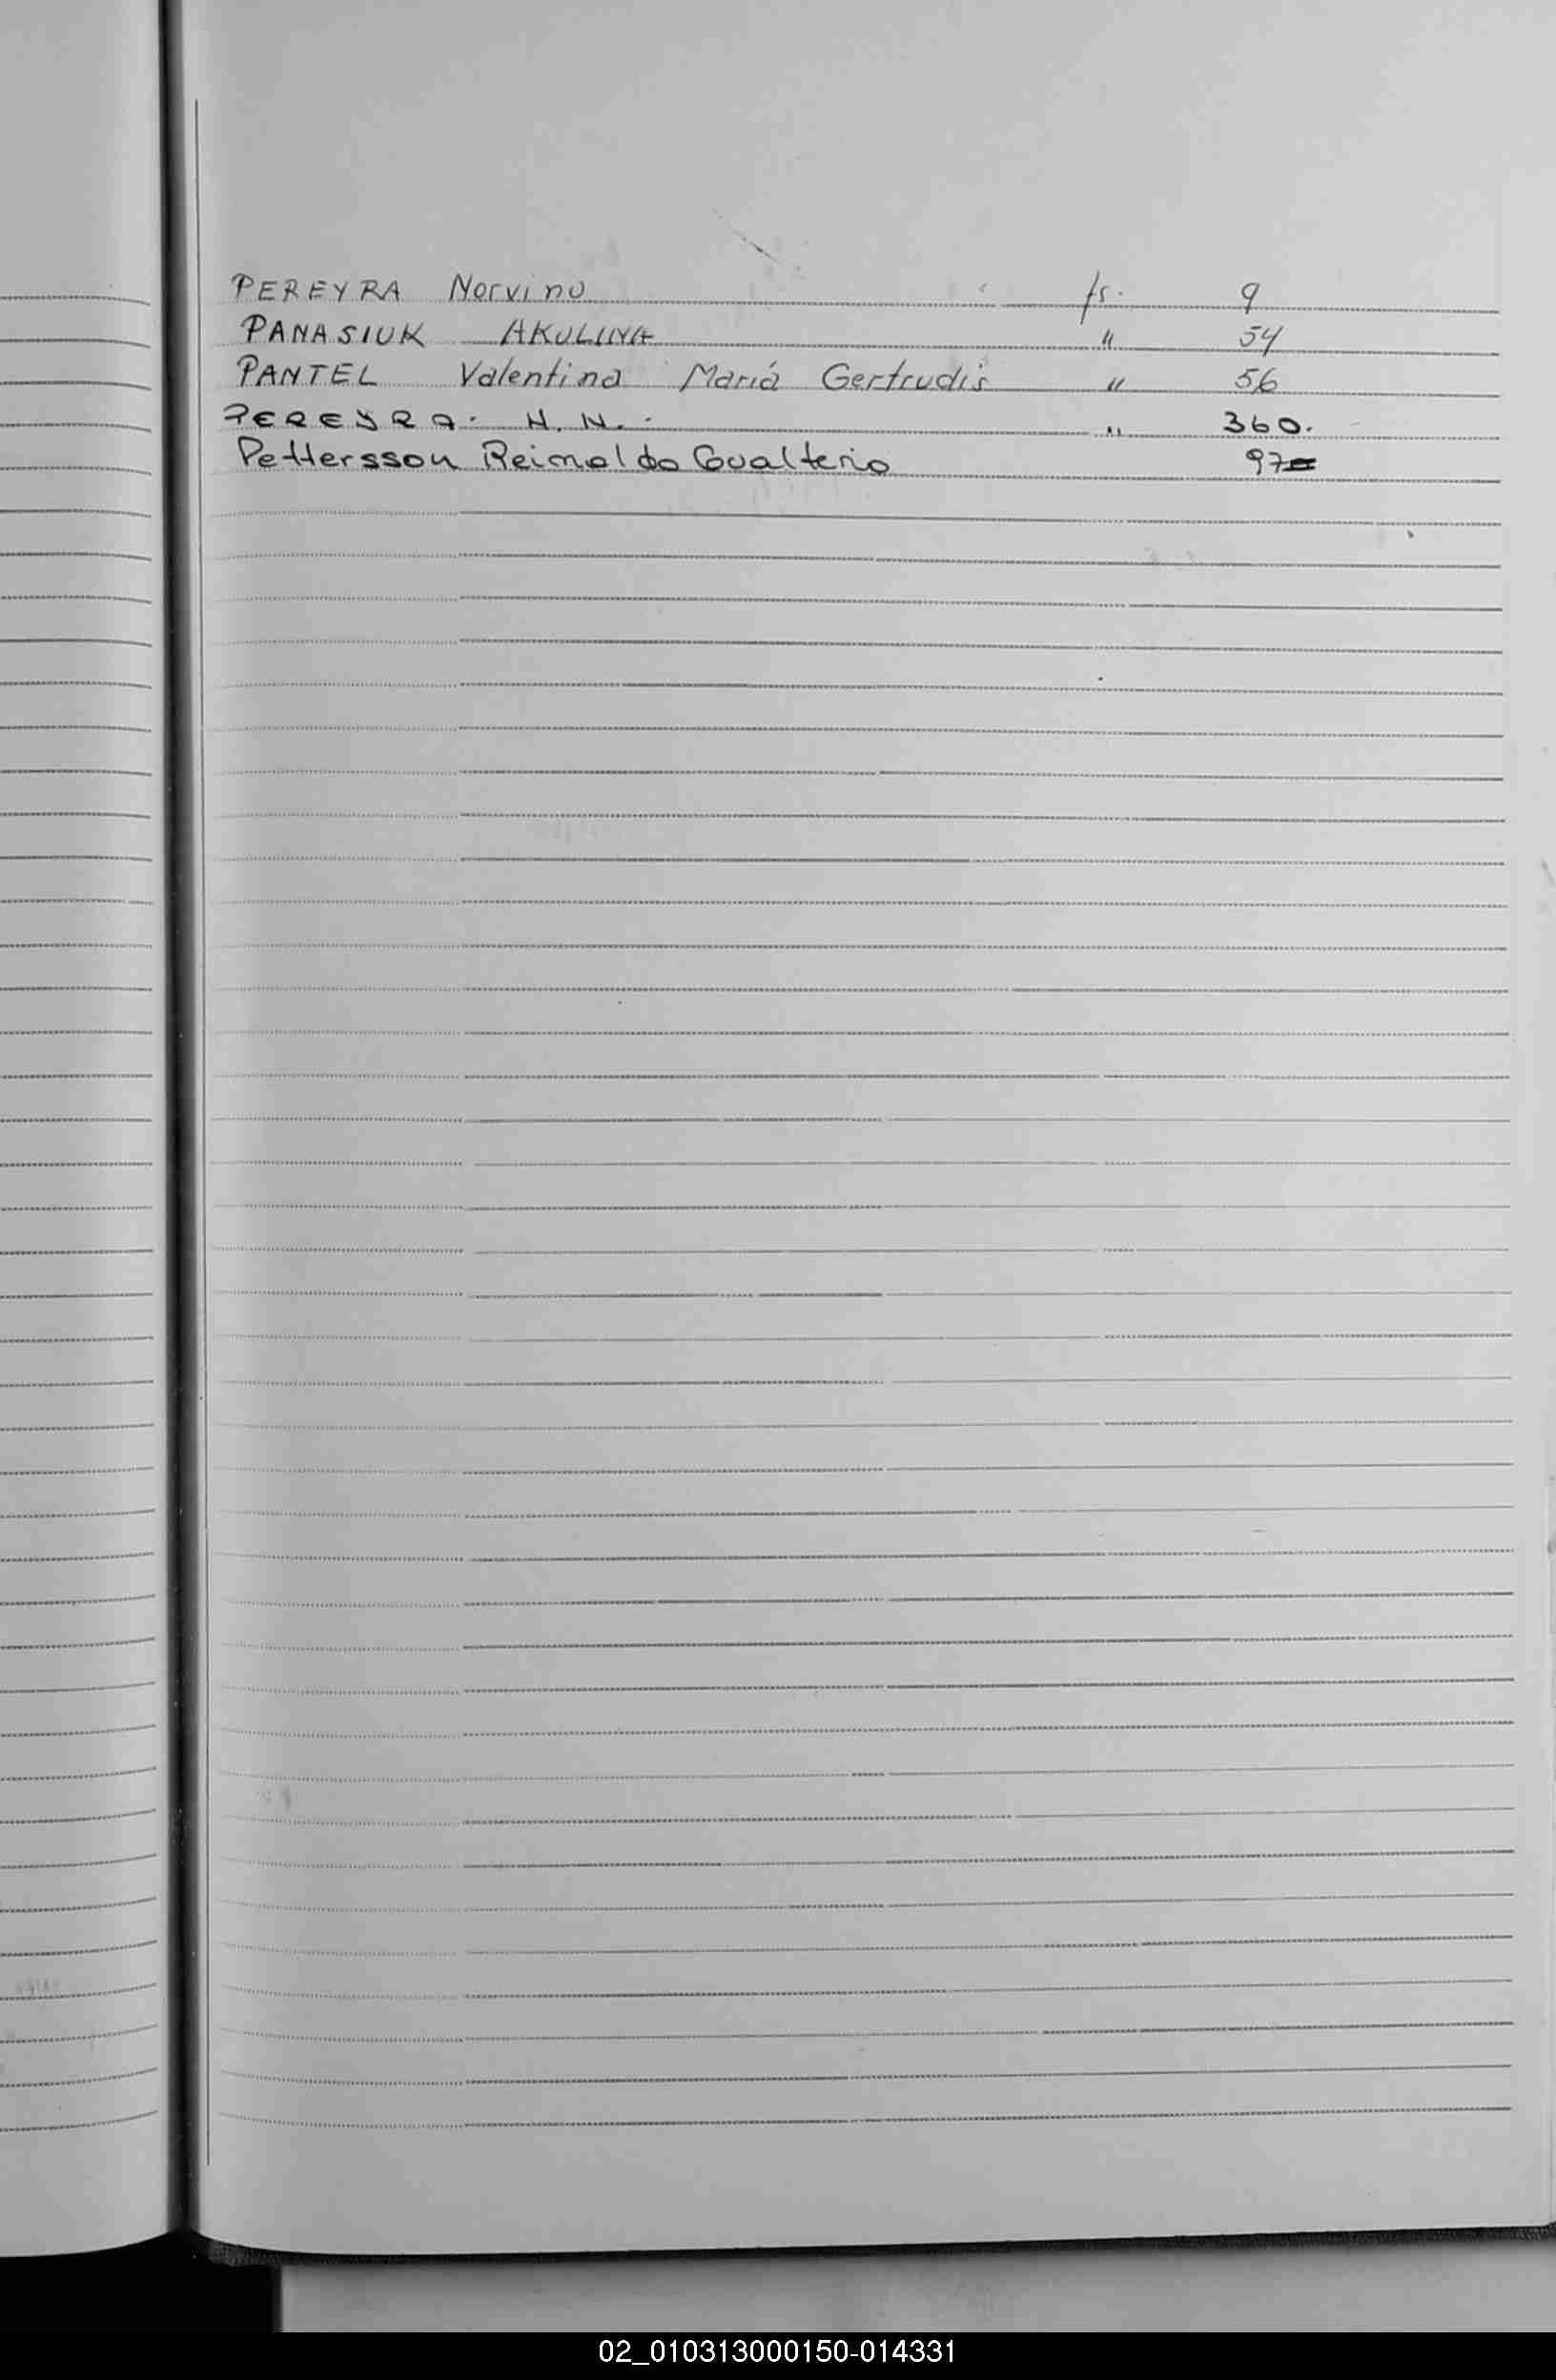 PEREYRA Norvino fs. 9
PANASIUK AKULINA " 54
PANTEL Valentina Mariá Gertrudis " 56
PEREYRA. N. N. " 360.
Pettersson Reinaldo Gualterio 97
02_010313000150-014331